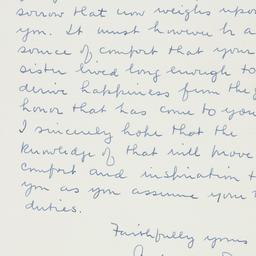 sorrow that now weighs upon
you. It must however be a
source of comfort that your
sister lived long enough to
derive happiness from the
honor that has come to you
I sincerely hope that the
knowledge of that will prove
comfort and inspiration to
you as you assume your
duties.
Faithfully yours